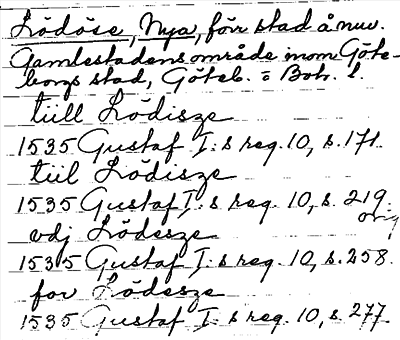 Lödöse, Nya, förr stad å nuv.
Gamlestadens område inom Göte-
borgs stad, Göteb. o Boh. l.
tiill Lödisze
1535 Gustaf I:s reg. 10, s. 171.
tiil Lödisze
1535 Gustaf I:s reg. 10, s. 219.
orig.
vdj Lödesze
1535 Gustaf I:s reg. 10, s. 258.
for Lödesze
1535 Gustaf I:s reg. 10, s. 277.